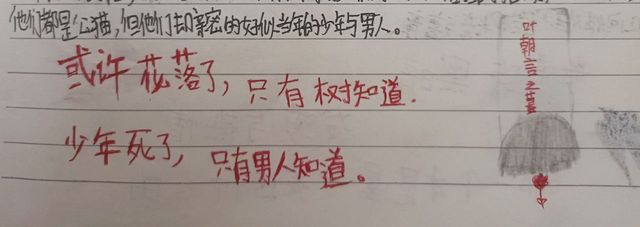 他们都是公猫,但他们却亲密的好似当年的少年与男人。
或许花落了,只有树知道.
少年死了,只有男人知道。
叶朝言之墓